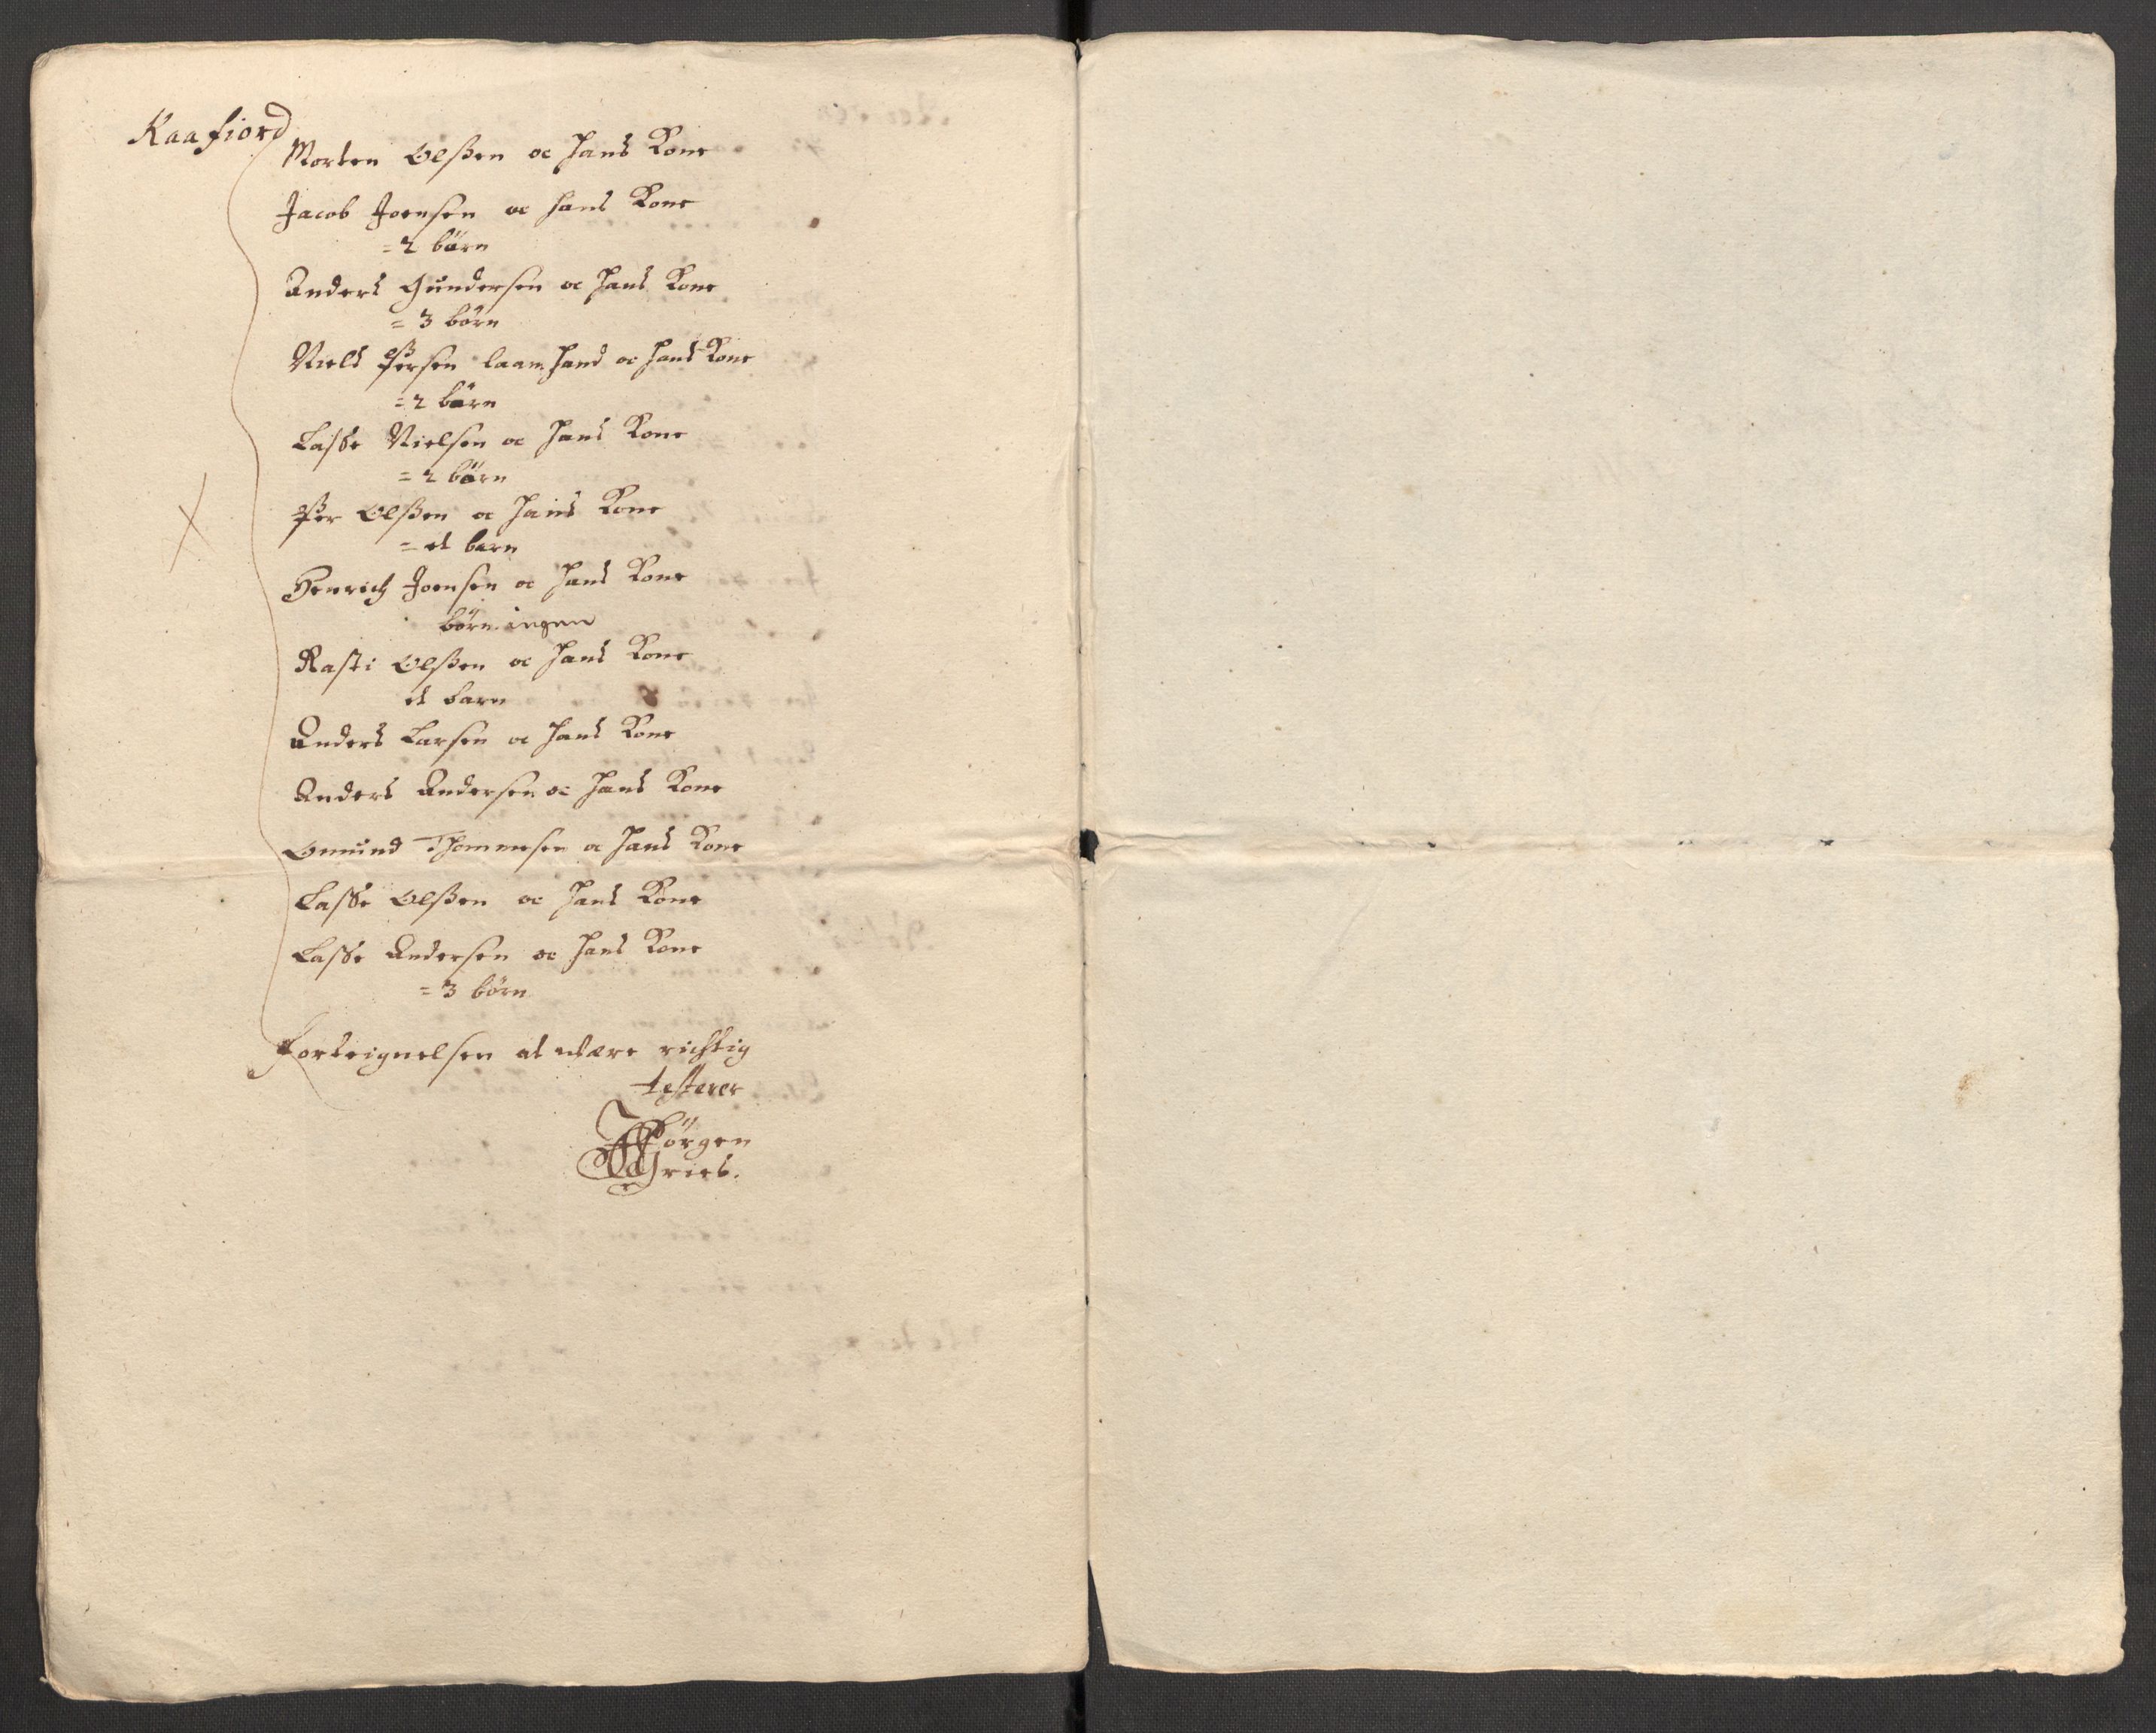 Kaafiord
Morten Olßen oc hans Kone
Jacob Joensen oc hans Kone
= 2 börn
Anders Gundersen oc hans Kone
= 3 börn
Niels Persen laamhand oc hans Kone
= 2 börn
Lasse Nielsen oc hans Kone
= 2 börn
Per Olßen oc hans Kone
= et barn
Henrich Joensen oc hans Kone
börn ingen
Rasti Olßen oc hans Kone
et barn
Anders Larsen oc hans Kone
Anders Andersen oc hans Kone
Omund Thommesen oc hans Kone
Lasse Olßen oc hans Kone
Lasse Andersen oc hans Kone
= 3 börn
forteignelsen at være richtig
testerer
Jörgen
Gries.